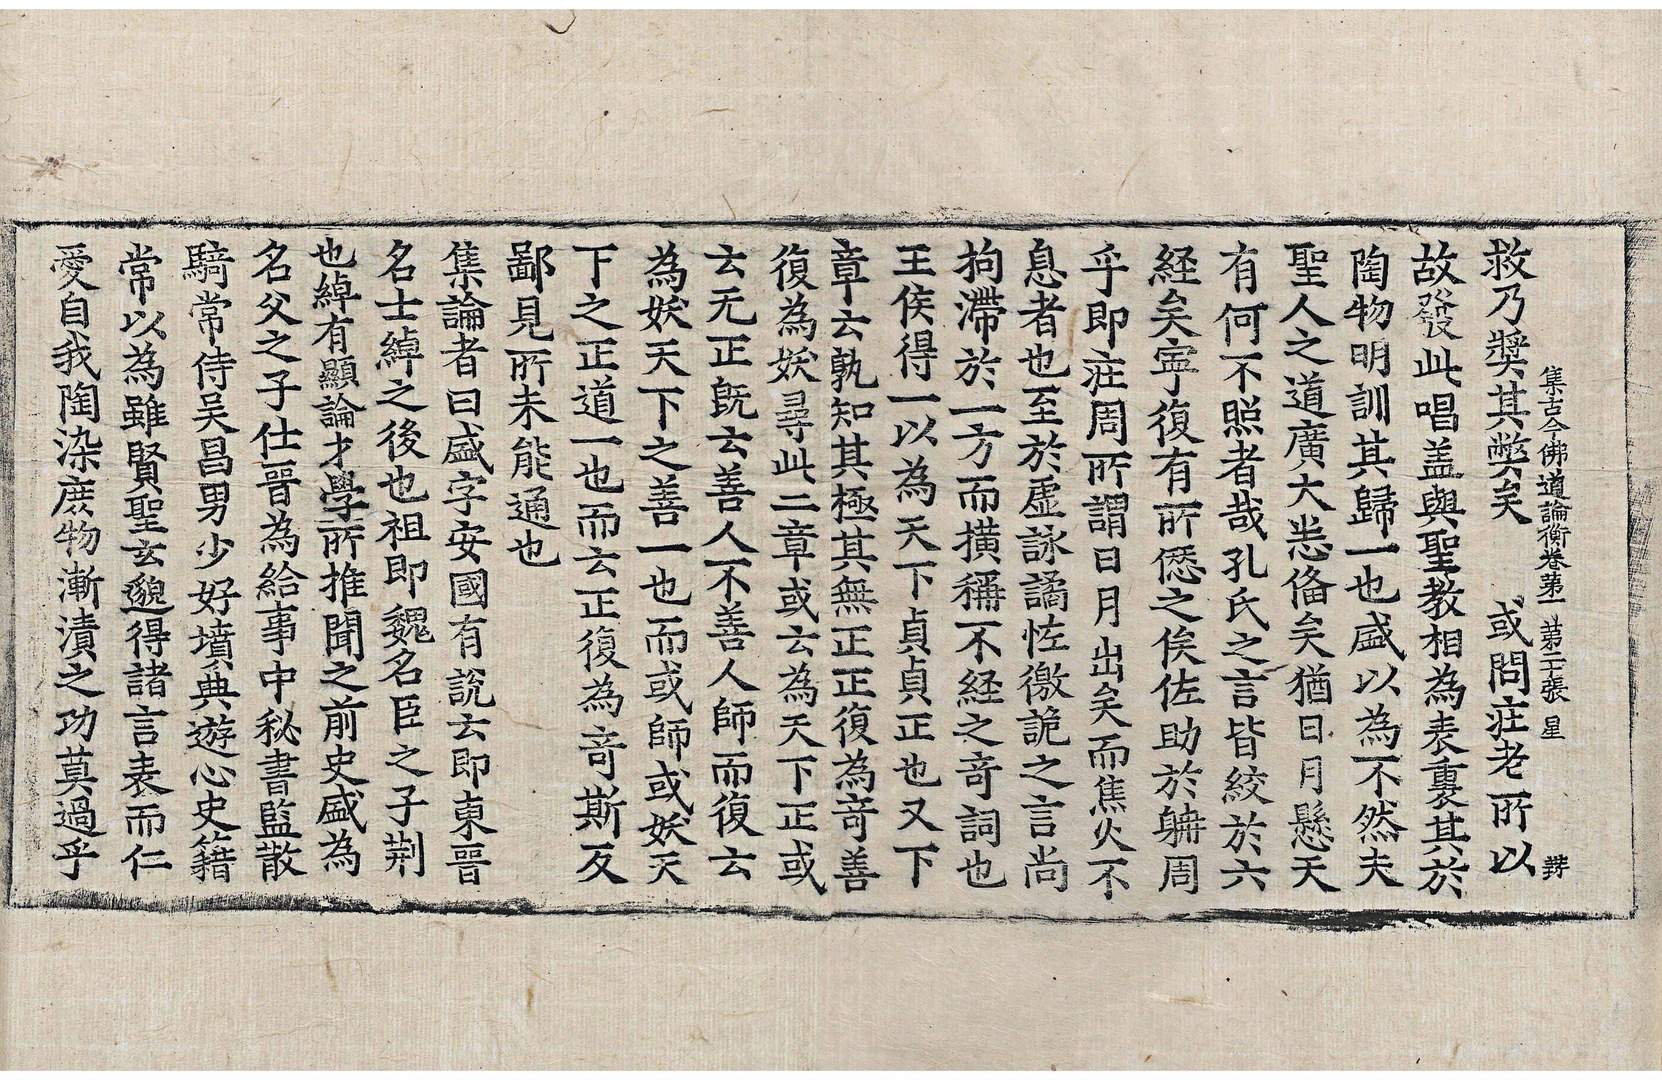 集古今佛道論衡卷第一 第二張 星 㝵
救乃奬其弊矣 或問莊老所以
故發此唱盖與聖教相為表裏其於
陶物明訓其歸一也盛以為不然夫
聖人之道廣大悉俻矣猶日月懸天
有何不照者哉孔氏之言皆絞於六
経矣寧復有所僁之俟佐助於躭周
乎即莊周所謂日月出矣而焦火不
息者也至於虚詠譎恠徼詭之言尚
拘滯於一方而撗稱不経之竒詞也
王侯得一以為天下貞貞正也又下
章云孰知其極其無正正復為竒善
復為妖尋此二章或云為天下正或
云无正旣云善人不善人師而復云
為妖天下之善一也而或師或妖天
下之正道一也而云正復為竒斯反
鄙見所未能通也
集論者曰盛字安國有說云即東晉
名士綽之後也祖即魏名臣之子荆
也綽有顯論才學所推聞之前史盛為
名父之子仕晉為給事中秘書監散
騎常侍吴昌男少好墳典遊心史籍
常以為雖賢聖玄邈得諸言表而仁
愛自我陶染庶物漸漬之功莫過乎